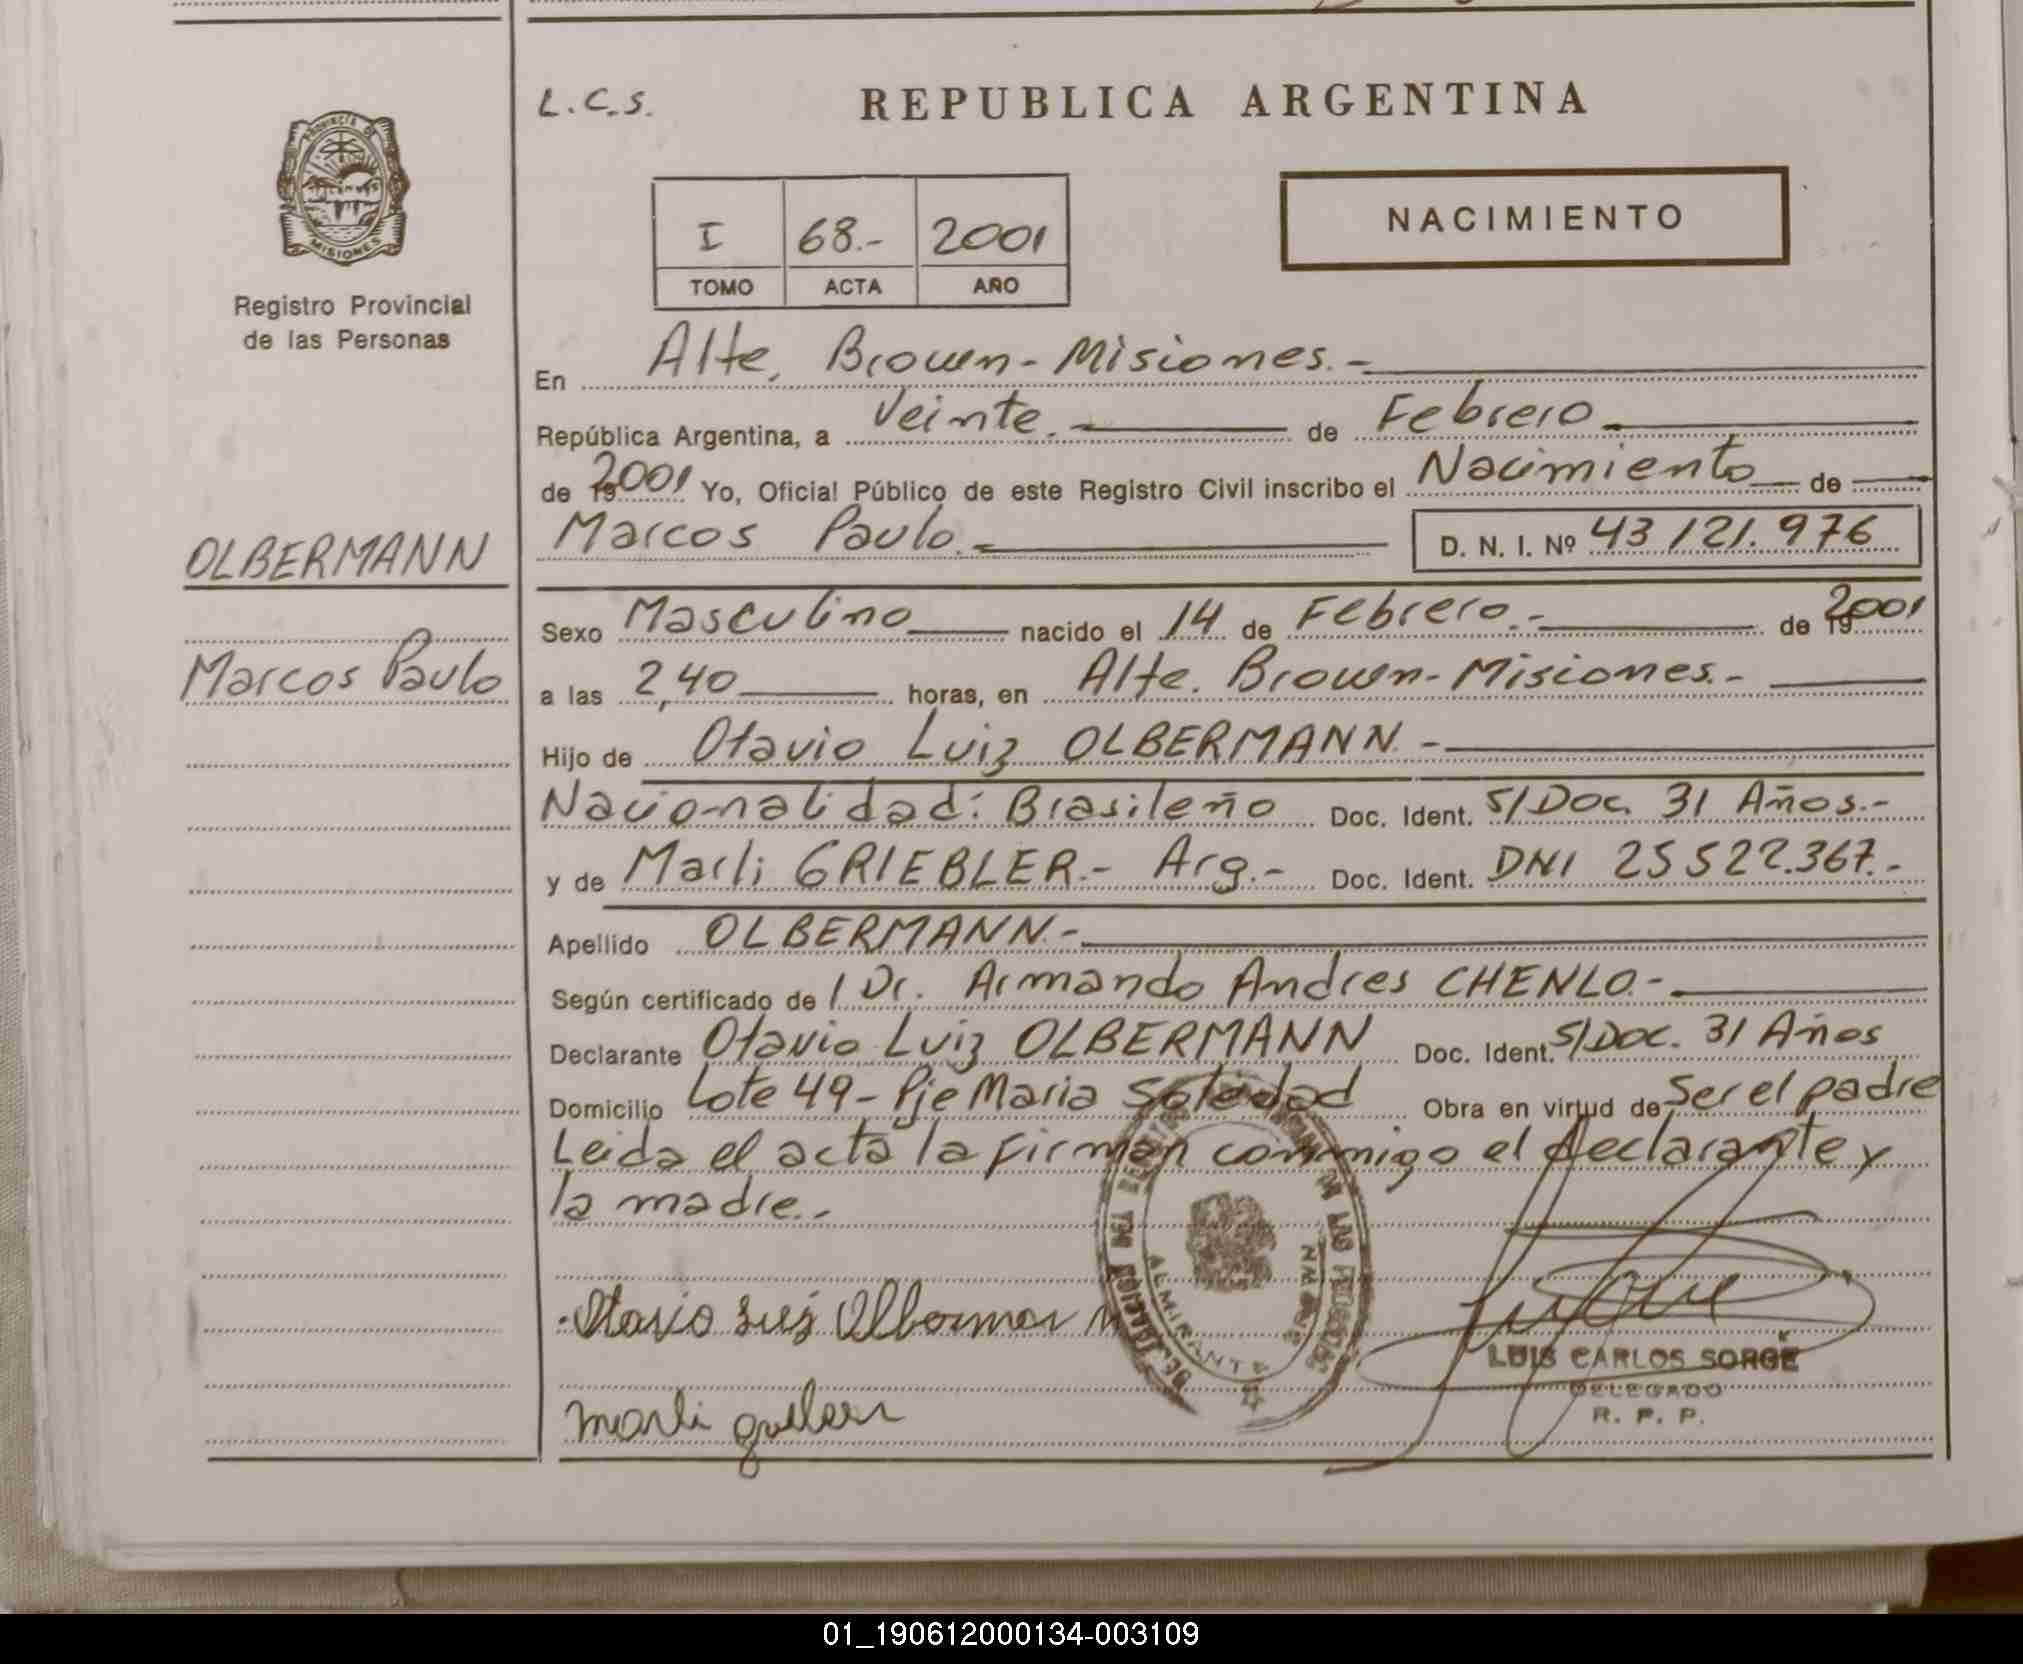 L.C.S.
REPUBLICA ARGENTINA
PROVINCIA DE
MISIONES
Registro Provincial
de las Personas
NACIMIENTO
I 68.- 2001
TOMO ACTA AÑO
En Alte. Brown - Misiones.-
República Argentina, a Veinte.- de Febrero
de 2001 Yo, Oficial Público de este Registro Civil inscribo el Nacimiento de
Marcos Paulo.- D. N. I. Nº 43 121.976
OLBERMANN
Marcos Paulo
Sexo Masculino nacido el 14 de Febrero.- de 2001
a las 2,40 horas, en Alte. Brown - Misiones.-
Hijo de Otavio Luiz OLBERMANN.-
Nacionalidad: Brasileño Doc. Ident. S/Doc. 31 Años.-
y de Marli GRIEBLER.- Arg.- Doc. Ident. DNI 25 522.367.-
Apellido OLBERMANN.-
Según certificado de Dr. Armando Andres CHENLO.-
Declarante Otavio Luiz OLBERMANN Doc. Ident. S/Doc. 31 Años
Domicilio Lote 49 - Pje Maria Soledad Obra en virtud de Ser el padre
Leida el acta la firman conmigo el declarante y
la madre.-
ALMIRANTE BROWN
LUIS CARLOS SORGE
DELEGADO
R. P. P.
Marli
01_190612000134-003109